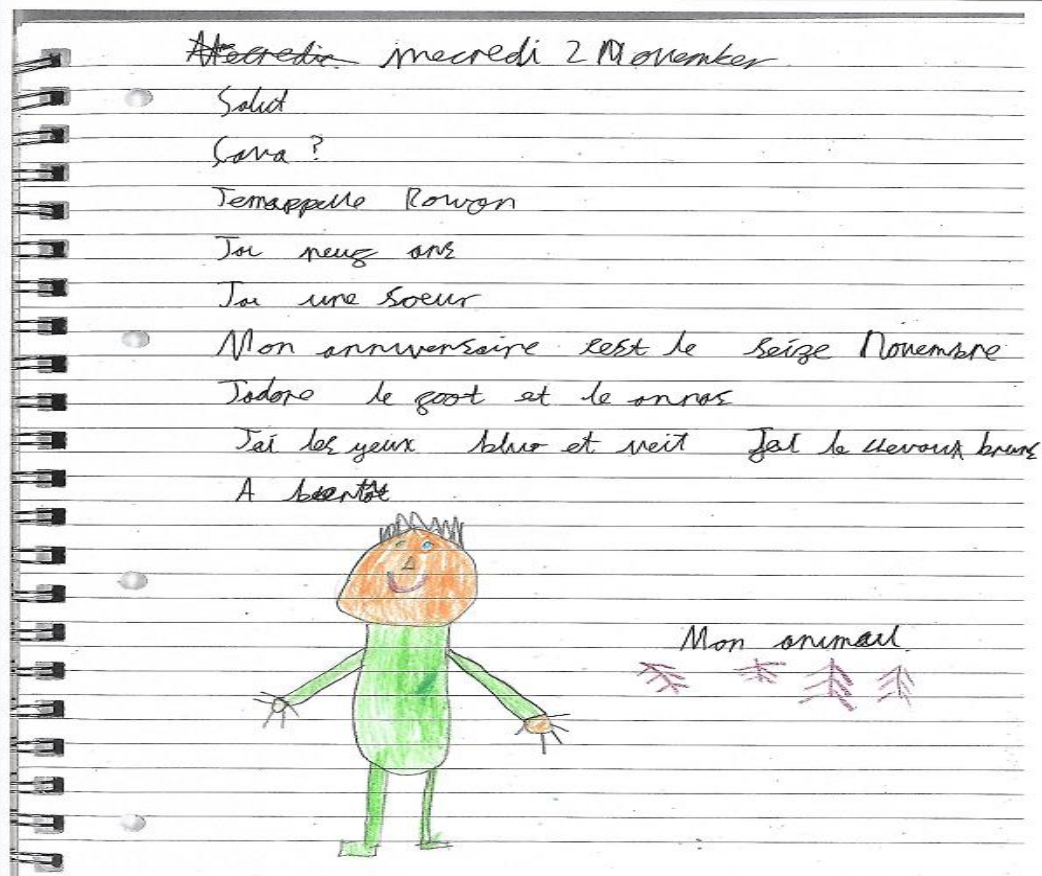 mecredi 2 November
Salut
Çava ?
Jemappelle Rowan
Jai neuf ans
Jai une soeur
Mon anniversaire cest le seize Novembre
Jadore le foot et le
Jai les yeux et Jai le brune
A bientôt
Mon animail.